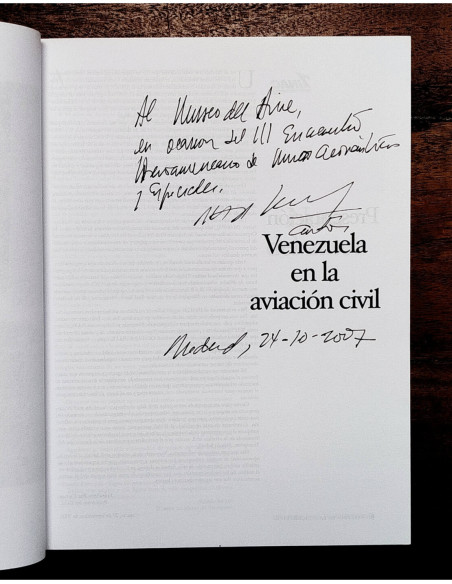 Al Museo del Aire,
en ocasion del III Encuentro
Iberoamericano de Museos Aeronáuticos
y Espaciales.
Venezuela
en la
aviación civil
Madrid, 24-10-2007